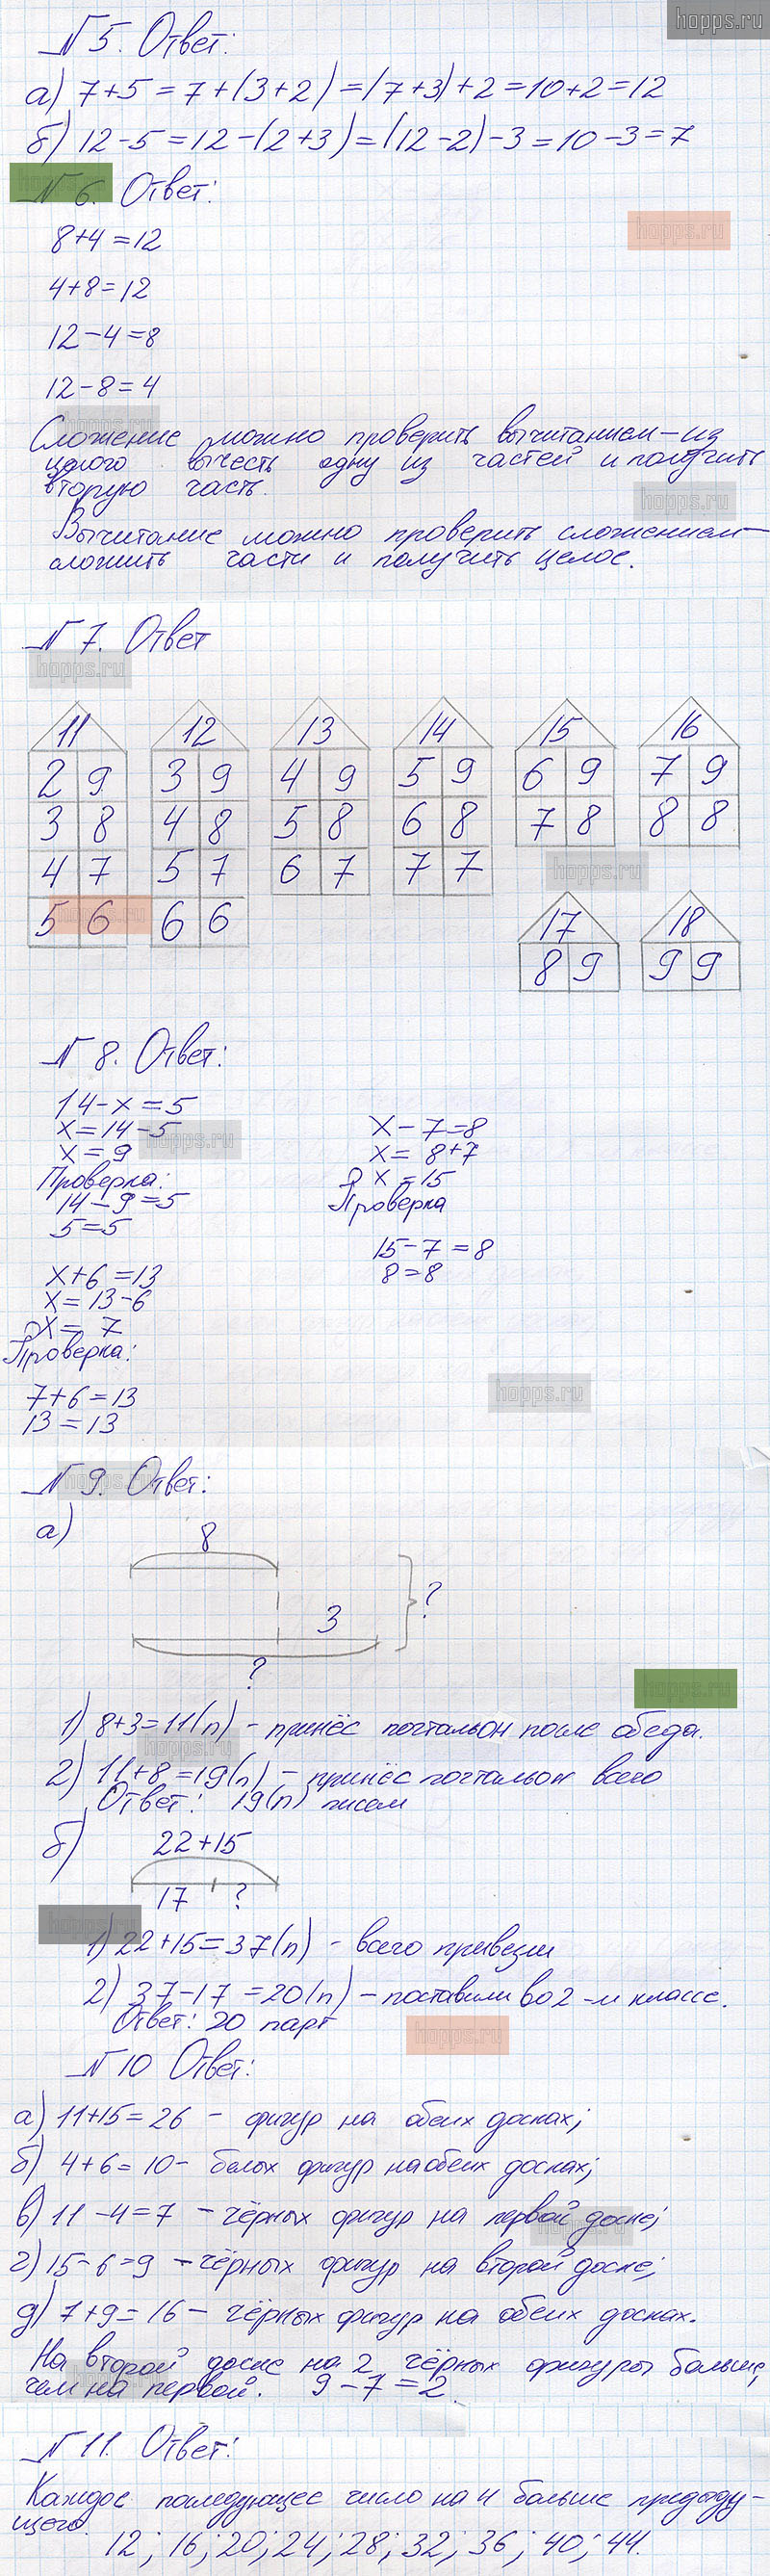 hopps.ru
№5. Ответ:
а) 7+5=7+(3+2)=(7+3)+2=10+2=12
б) 12-5=12-(2+3)=(12-2)-3=10-3=7
№6. Ответ:
hopps.ru
8+4=12
4+8=12
12-4=8
12-8=4
Сложение можно проверить вычитанием-из
целого вычесть одну из частей и получить
вторую часть.
hopps.ru
Вычитание можно проверить сложением-
сложить части и получить целое.
№7. Ответ
hopps.ru
11 12 13 14 15 16
2 9 3 9 4 9 5 9 6 9 7 9
3 8 4 8 5 8 6 8 7 8 8 8
4 7 5 7 6 7 7 7
hopps.ru
5 6 6 6
17 18
8 9 9 9
№8. Ответ:
14-x=5
x=14-5
hopps.ru
x=9
Проверка:
14-9=5
5=5
x-7=8
x=8+7
x=15
Проверка
15-7=8
8=8
x+6=13
x=13-6
x=7
Проверка:
7+6=13
13=13
hopps.ru
№9. Ответ:
а)
8
3
?
?
hopps.ru
1) 8+3=11(п) - принёс почтальон после обеда.
hopps.ru
2) 11+8=19(п) - принёс почтальон всего
Ответ: 19(п) писем
б)
22+15
17 ?
hopps.ru
1) 22+15=37(п) - всего привезли
2) 37-17=20(п) - поставили во 2-м классе.
Ответ: 20 парт
hopps.ru
№10 Ответ:
а) 11+15=26 - фигур на обеих досках;
б) 4+6=10- белых фигур на обеих досках;
в) 11-4=7 - чёрных фигур на первой доске;
hopps.ru
г) 15-6=9 - чёрных фигур на второй доске;
д) 7+9=16 - чёрных фигур на обеих досках.
На второй доске на 2 чёрных фигуры больше,
чем на первой. 9-7=2
№11. Ответ:
Каждое последующее число на 4 больше предыду-
щего
12; 16; 20; 24; 28; 32; 36; 40; 44.